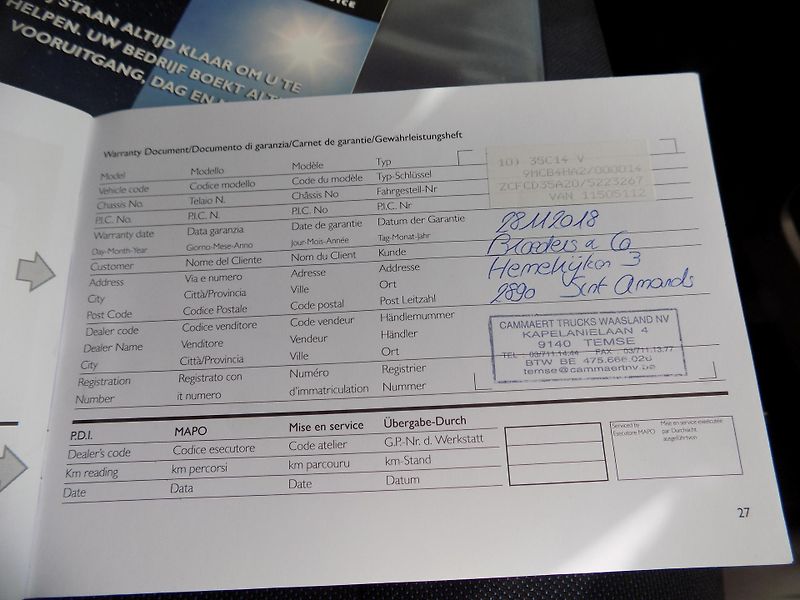 ICE
IJ STAAN ALTIJD KLAAR OM U TE
HELPEN. UW BEDRIJF BOEKT ALTI
VOORUITGANG, DAG EN
Warranty Document/Documento di garanzia/Carnet de garantie/Gewährleistungsheft
Model Modello Modèle Typ
Vehicle code Codice modello Code du modèle Typ-Schlüssel
Chassis No. Telaio N. Châssis No Fahrgestell-Nr
P.I.C. No. P.I.C. N. P.I.C. No P.I.C. Nr
Warranty date Data garanzia Date de garantie Datum der Garantie
Day-Month-Year Giorno-Mese-Anno Jour-Mois-Année Tag-Monat-Jahr
Customer Nome del Cliente Nom du Client Kunde
Address Via e numero Adresse Addresse
City Città/Provincia Ville Ort
Post Code Codice Postale Code postal Post Leitzahl
Dealer code Codice venditore Code vendeur Händlernummer
Dealer Name Venditore Vendeur Händler
City Città/Provincia Ville Ort
Registration Registrato con Numéro Registrier
Number it numero d'immatriculation Nummer
10) 35C14 V
9MCB4HA2/000014
ZCFCD35A20/5223267
VAN 11505112
28112018
Broeders & Co
3
2890 Sint Amands
CAMMAERT TRUCKS WAASLAND NV
KAPELANIELAAN 4
9140 TEMSE
TEL : 03/711.14.44 FAX : 03/711.13.77
BTW BE 475.666.026
temse@cammaertnv.be
P.D.I. MAPO Mise en service Übergabe-Durch
Dealer's code Codice esecutore Code atelier G.P.-Nr. d. Werkstatt
Km reading km percorsi km parcouru km-Stand
Date Data Date Datum
Serviced by Mise en service exécutée
Esecutore MAPO par Durchsicht
ausgeführtvon
27